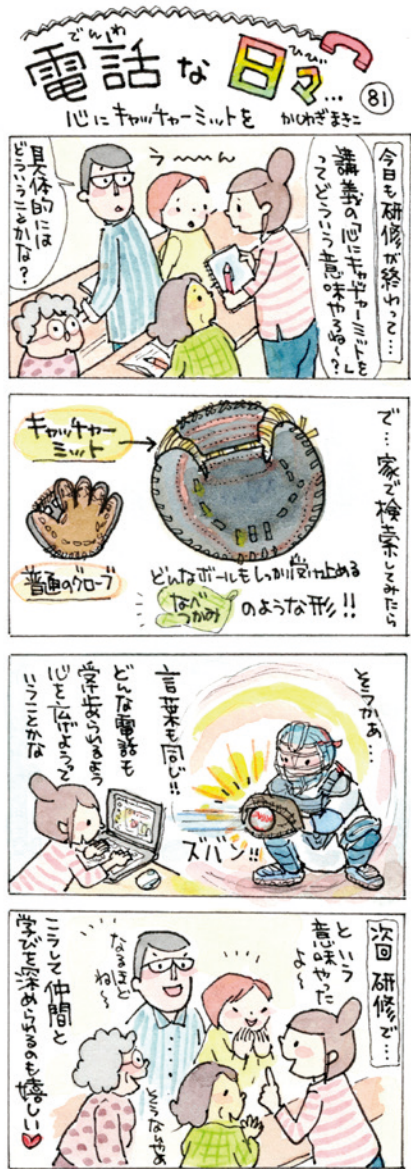 でんわ
電話な日々…
びび
81
心にキャッチャーミットを
かしわぎまきこ
今日も研修が終わって…
講義の「心にキャッチャーミットを」
ってどういう意味やろね〜?
う〜〜ん
具体的には
どういうことかな?
で…家で検索してみたら
キャッチャー
ミット
普通のグローブ
どんなボールもしっかり受け止める
なべ
つかみ
のような形!!
そうかぁ…
言葉も同じ!!
どんな電話も
受け止められるよう
心を広げようって
いうことかな
ズバン!!
次回 研修で…
という
意味やった
よ〜
なるほど
ね〜
そうなんやぁ
こうして仲間と
学びを深められるのも嬉しい♥